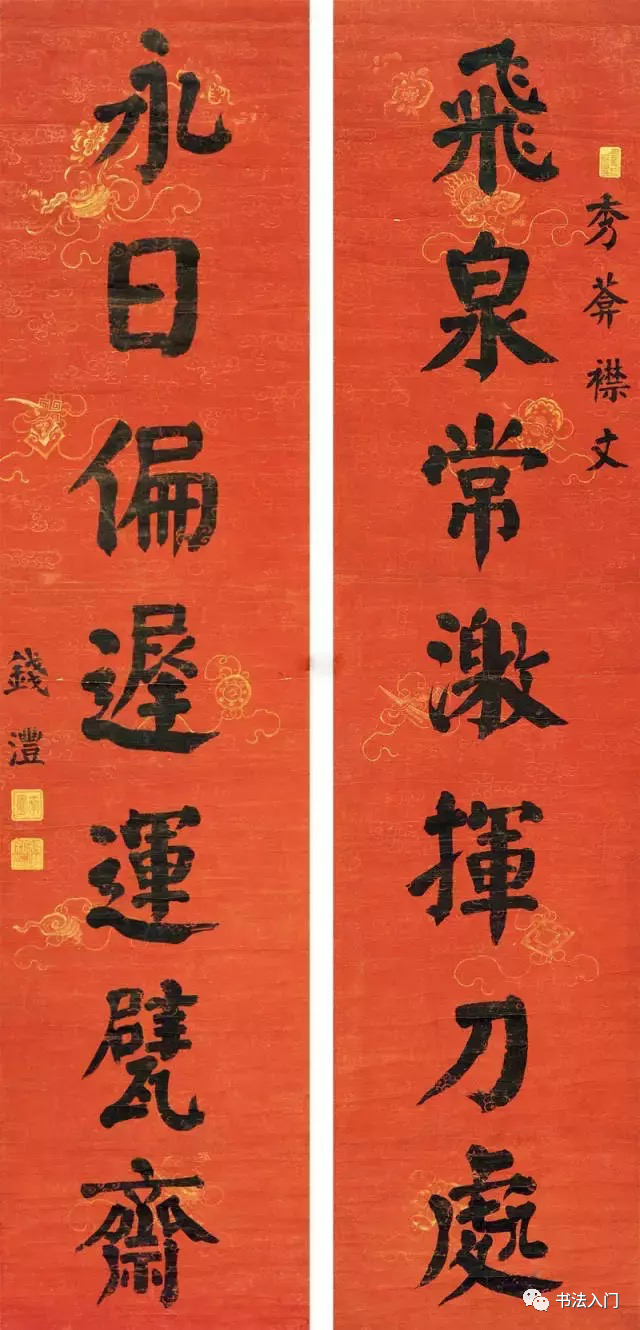 秀葊襟丈
飛泉常激揮刀處
永日偏遲運甓齋
錢灃
书法入门